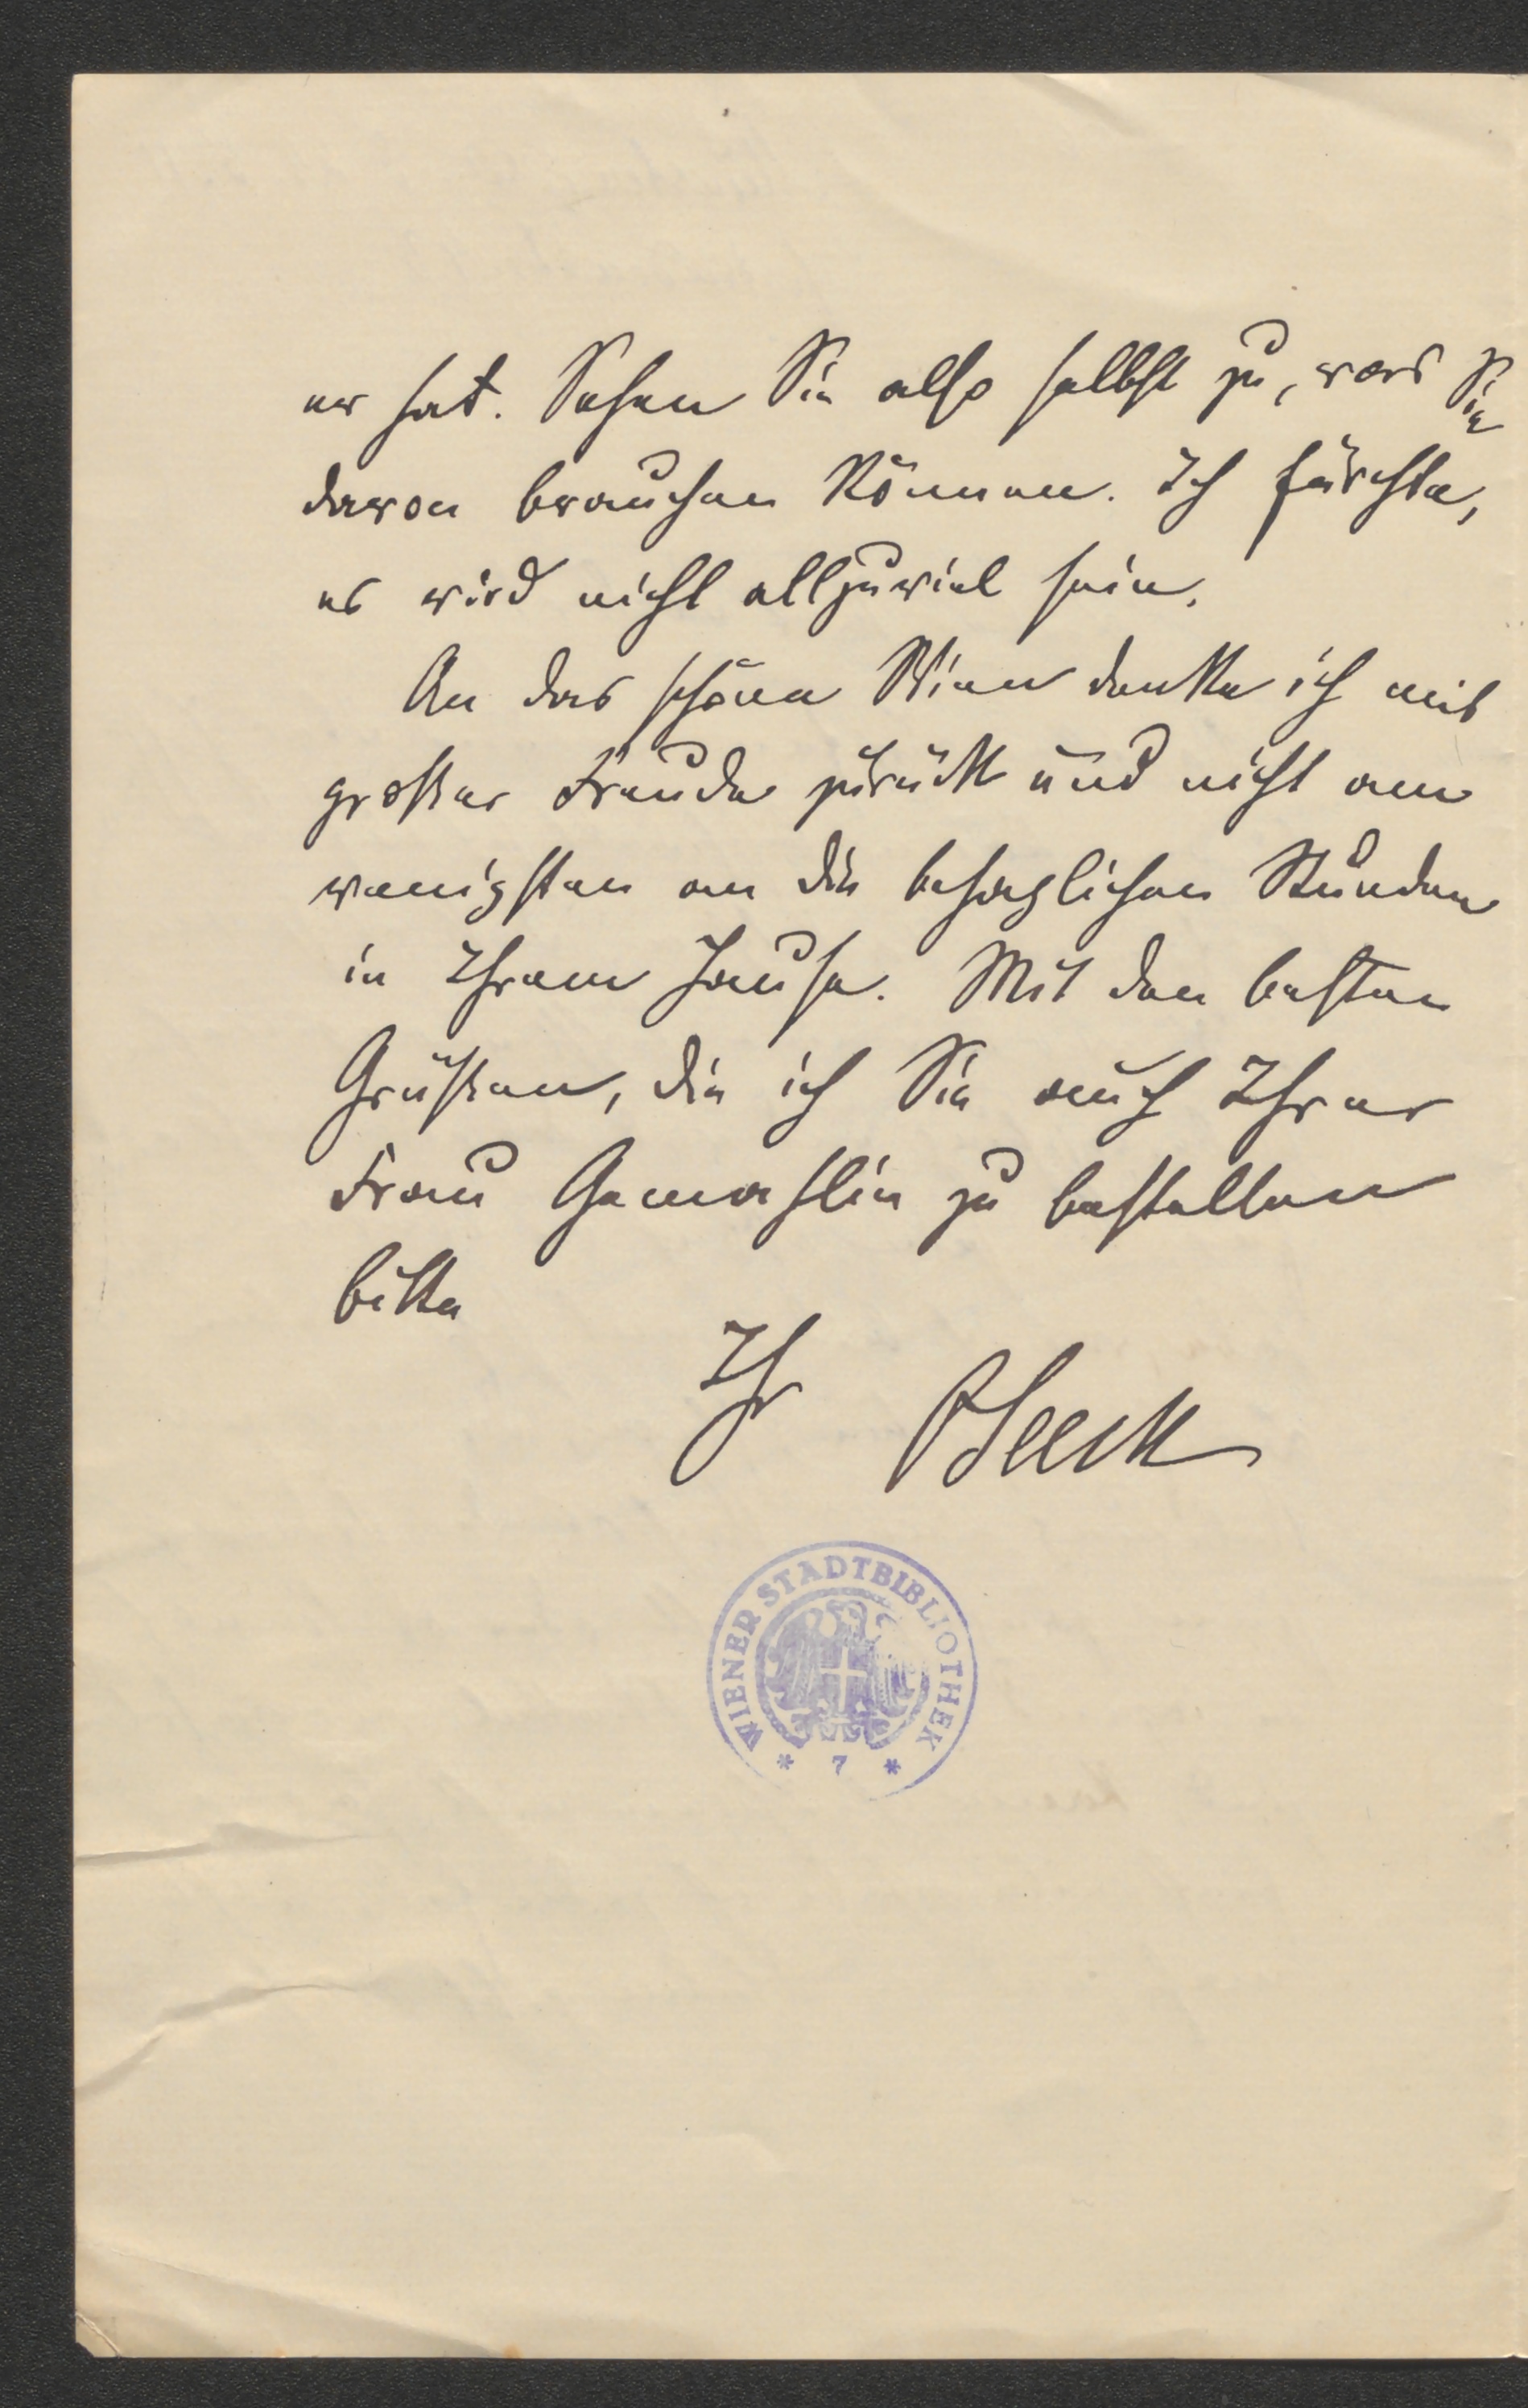 er hat. Sehen Sie also selbst zu, was Sie
davon brauchen können. Ich fürchte,
es wird nicht allzuviel sein.
An das schöne Wien denke ich mit
großer Freude zurück und nicht am
wenigsten an die behaglichen Stunden
in Ihrem Hause. Mit den besten
Grüßen, die ich Sie auch Ihrer
Frau Gemahlin zu bestellen
bitte
Ihr OSeeck
WIENER STADTBIBLIOTHEK
* 7 *